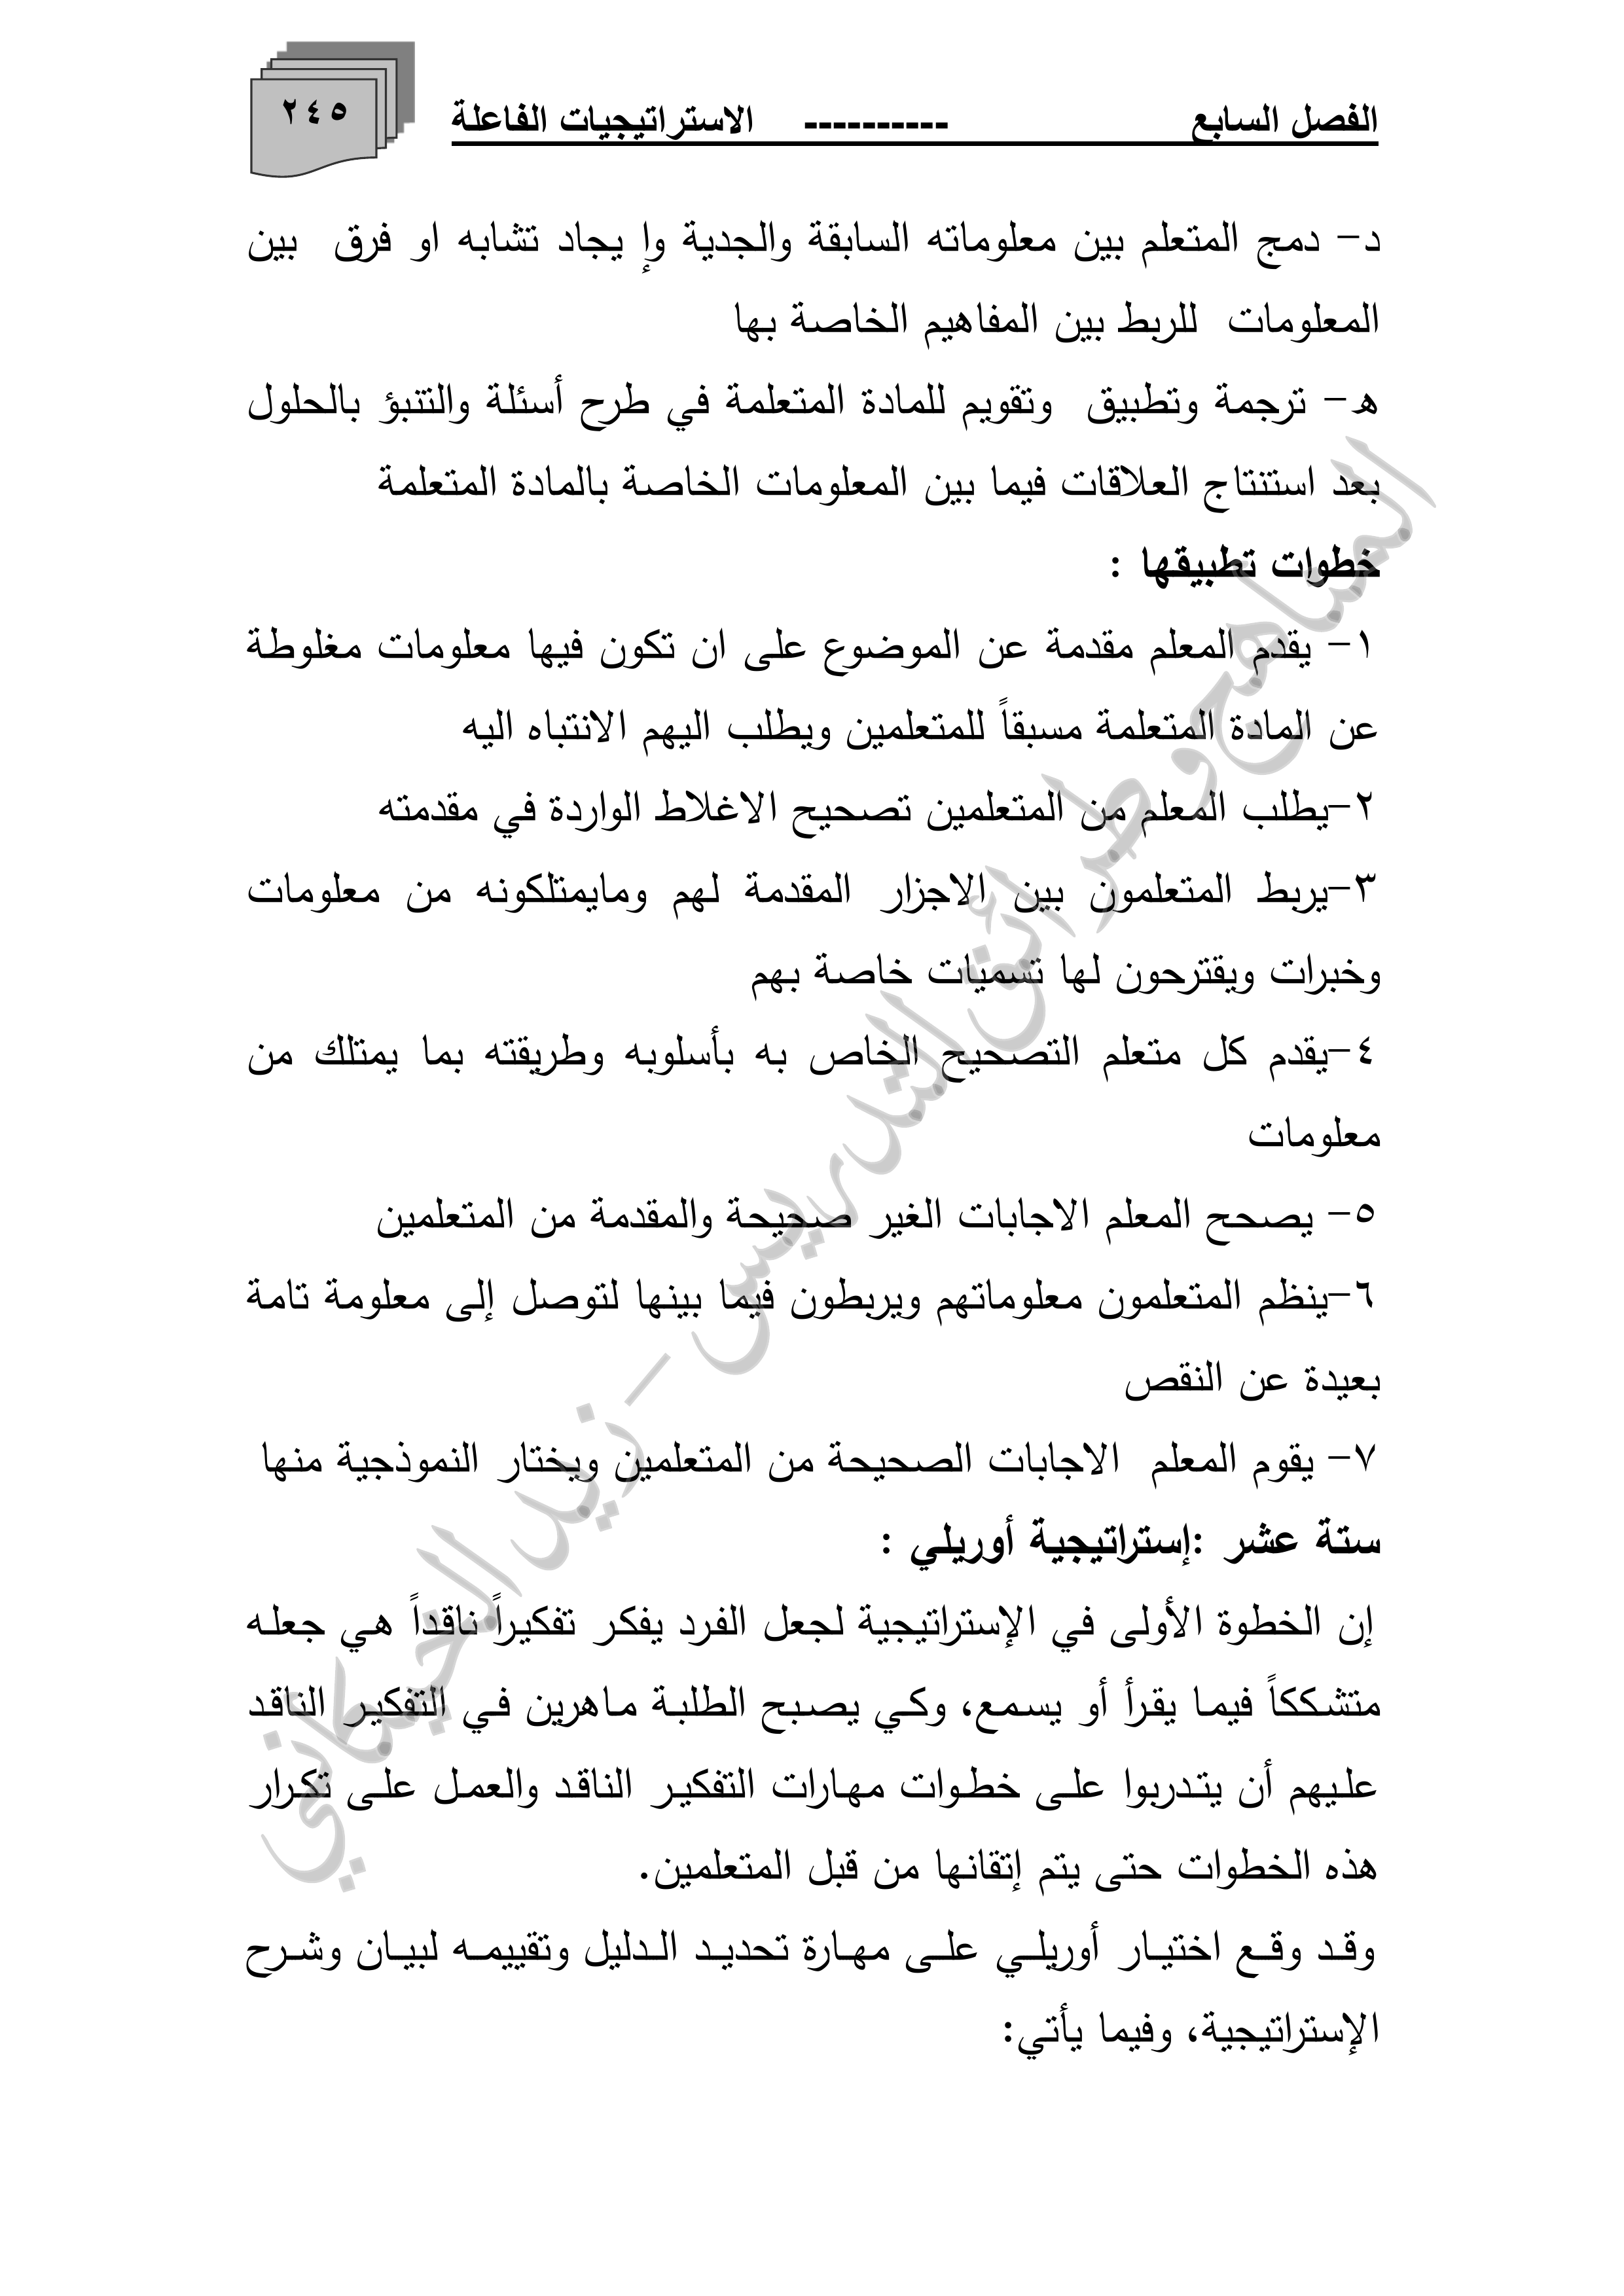 الفصل السابع ---------- الاستراتيجيات الفاعلة
٢٤٥
د- دمج المتعلم بين معلوماته السابقة والجدية وإ يجاد تشابه او فرق بين
المعلومات للربط بين المفاهيم الخاصة بها
ه- ترجمة وتطبيق وتقويم للمادة المتعلمة في طرح أسئلة والتنبؤ بالحلول
بعد استنتاج العلاقات فيما بين المعلومات الخاصة بالمادة المتعلمة
خطوات تطبيقها :
١- يقدم المعلم مقدمة عن الموضوع على ان تكون فيها معلومات مغلوطة
عن المادة المتعلمة مسبقاً للمتعلمين ويطلب اليهم الانتباه اليه
٢-يطلب المعلم من المتعلمين تصحيح الاغلاط الواردة في مقدمته
٣-يربط المتعلمون بين الاجزار المقدمة لهم ومايمتلكونه من معلومات
وخبرات ويقترحون لها تسميات خاصة بهم
٤-يقدم كل متعلم التصحيح الخاص به بأسلوبه وطريقته بما يمتلك من
معلومات
٥- يصحح المعلم الاجابات الغير صحيحة والمقدمة من المتعلمين
٦-ينظم المتعلمون معلوماتهم ويربطون فيما بينها لتوصل إلى معلومة تامة
بعيدة عن النقص
٧- يقوم المعلم الاجابات الصحيحة من المتعلمين ويختار النموذجية منها
ستة عشر :إستراتيجية أوريلي :
إن الخطوة الأولى في الإستراتيجية لجعل الفرد يفكر تفكيراً ناقداً هي جعله
متشككاً فيما يقرأ أو يسمع، وكي يصبح الطلبة ماهرين في التفكير الناقد
عليهم أن يتدربوا على خطوات مهارات التفكير الناقد والعمل على تكرار
هذه الخطوات حتى يتم إتقانها من قبل المتعلمين.
وقد وقع اختيار أوريلي على مهارة تحديد الدليل وتقييمه لبيان وشرح
الإستراتيجية، وفيما يأتي:
المناهج وطرائق التدريس - زيد الخيكاني